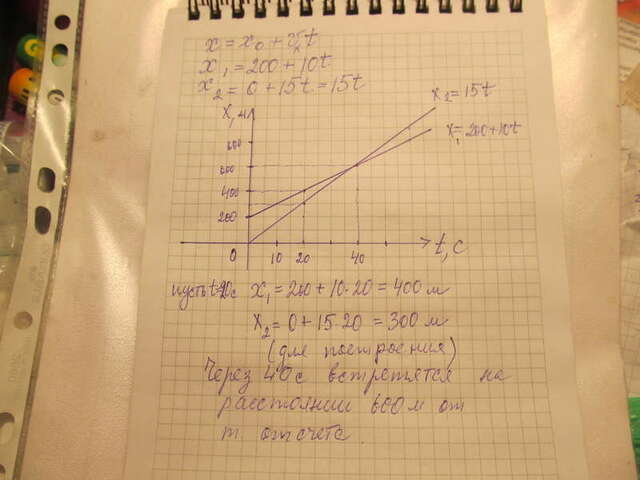 x = x₀ + v𝓍t
x₁ = 200 + 10t
x₂ = 0 + 15t = 15t
x, м
x₂ = 15t
x₁ = 200 + 10t
800
600
400
200
0 10 20 40 t, c
пусть t=20с x₁ = 200 + 10·20 = 400 м
x₂ = 0 + 15·20 = 300 м
(для построения)
Через 40с встретятся на
расстоянии 600 м от
т. отсчета.